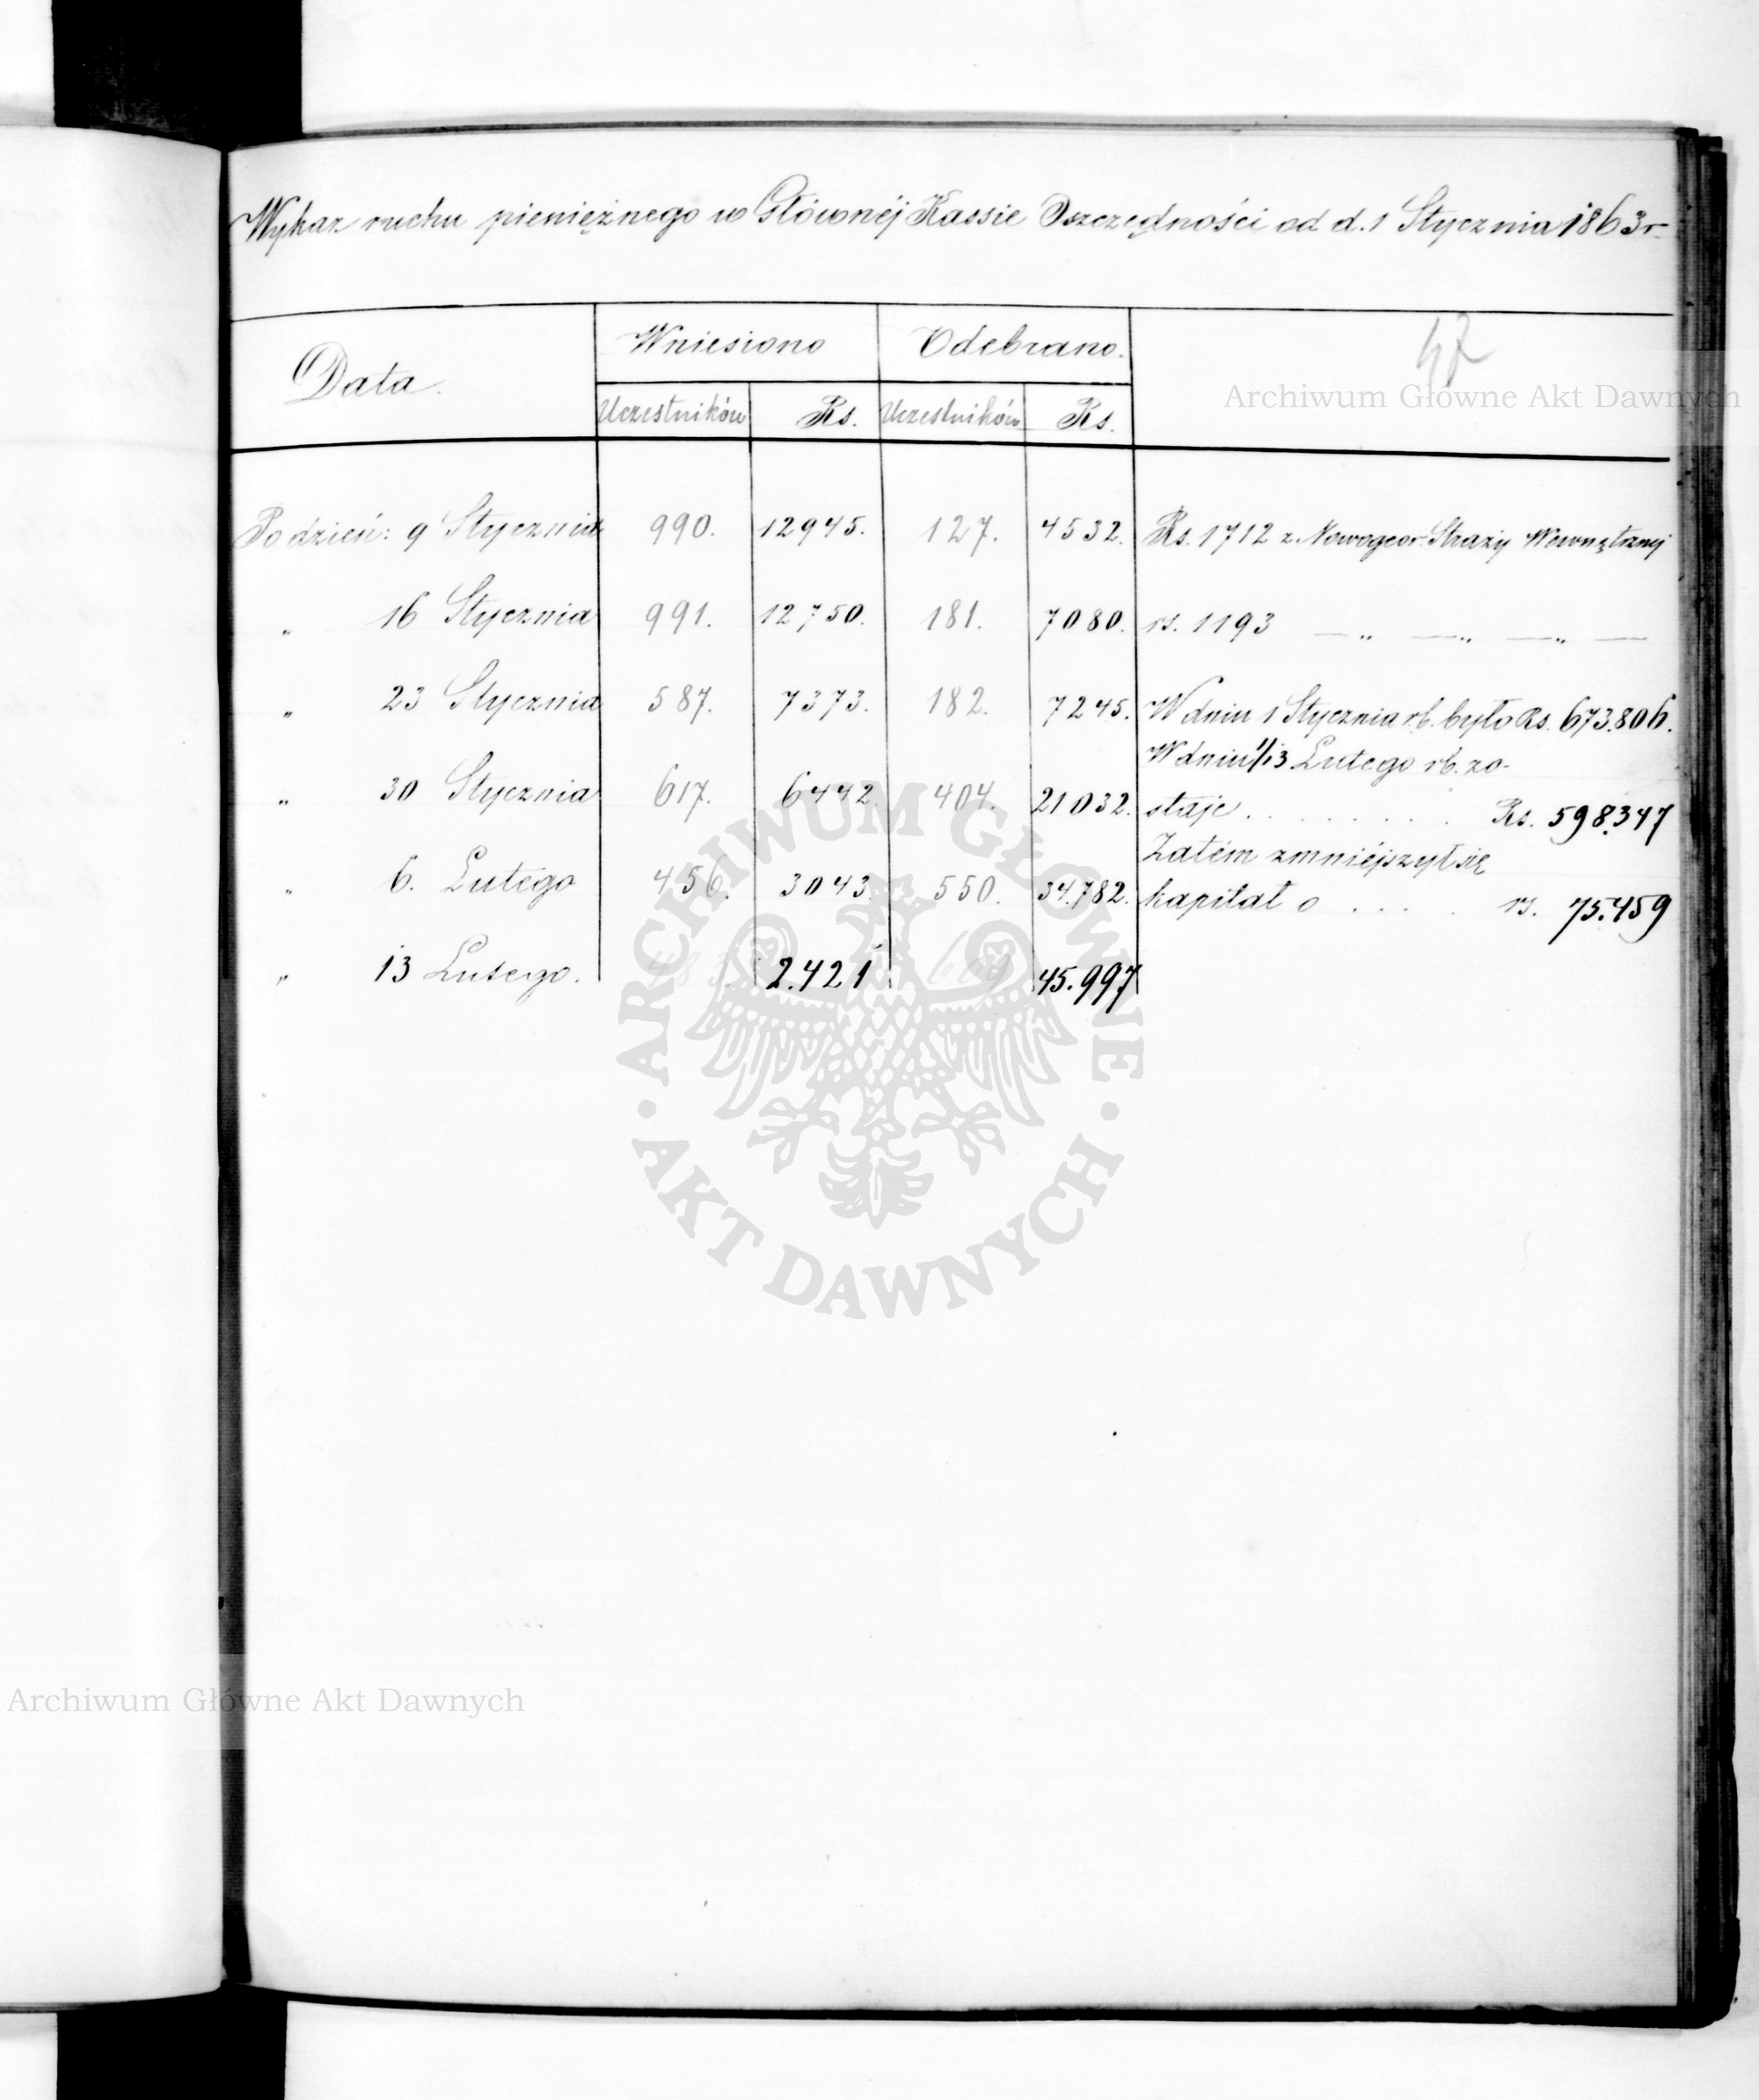 Wykaz ruchu pieniężnego w Głównéj Kassie Oszczędności od d. 1 Stycznia 1863 r.
47
Data. Wniesiono Odebrano.
Uczestników Rs. Uczestników Rs.
Po dzień: 9 Stycznia 990. 12945. 127. 4532. Rs. 1712 z Nowogeor. Straży Wewnętrznej
„ 16 Stycznia 991. 12750. 181. 7080. rs. 1193 — „ — „ — „ —
„ 23 Stycznia 587. 7373. 182. 7245. W dniu 1 Stycznia r.b. było Rs. 673.806.
W dniu 1/13 Lutego rb. zo-
„ 30 Stycznia 617. 6442. 404. 21032. staje . . . . . . . . Rs. 598.347
Zatém zmniéjszył się
„ 6. Lutégo 456. 3043. 550. 34.782. kapitał o . . . . rs. 75.459
„ 13 Lutego. 483. 2.421 45.997
Archiwum Główne Akt Dawnych
ARCHIWUM GŁÓWNE
· AKT DAWNYCH ·
Archiwum Główne Akt Dawnych